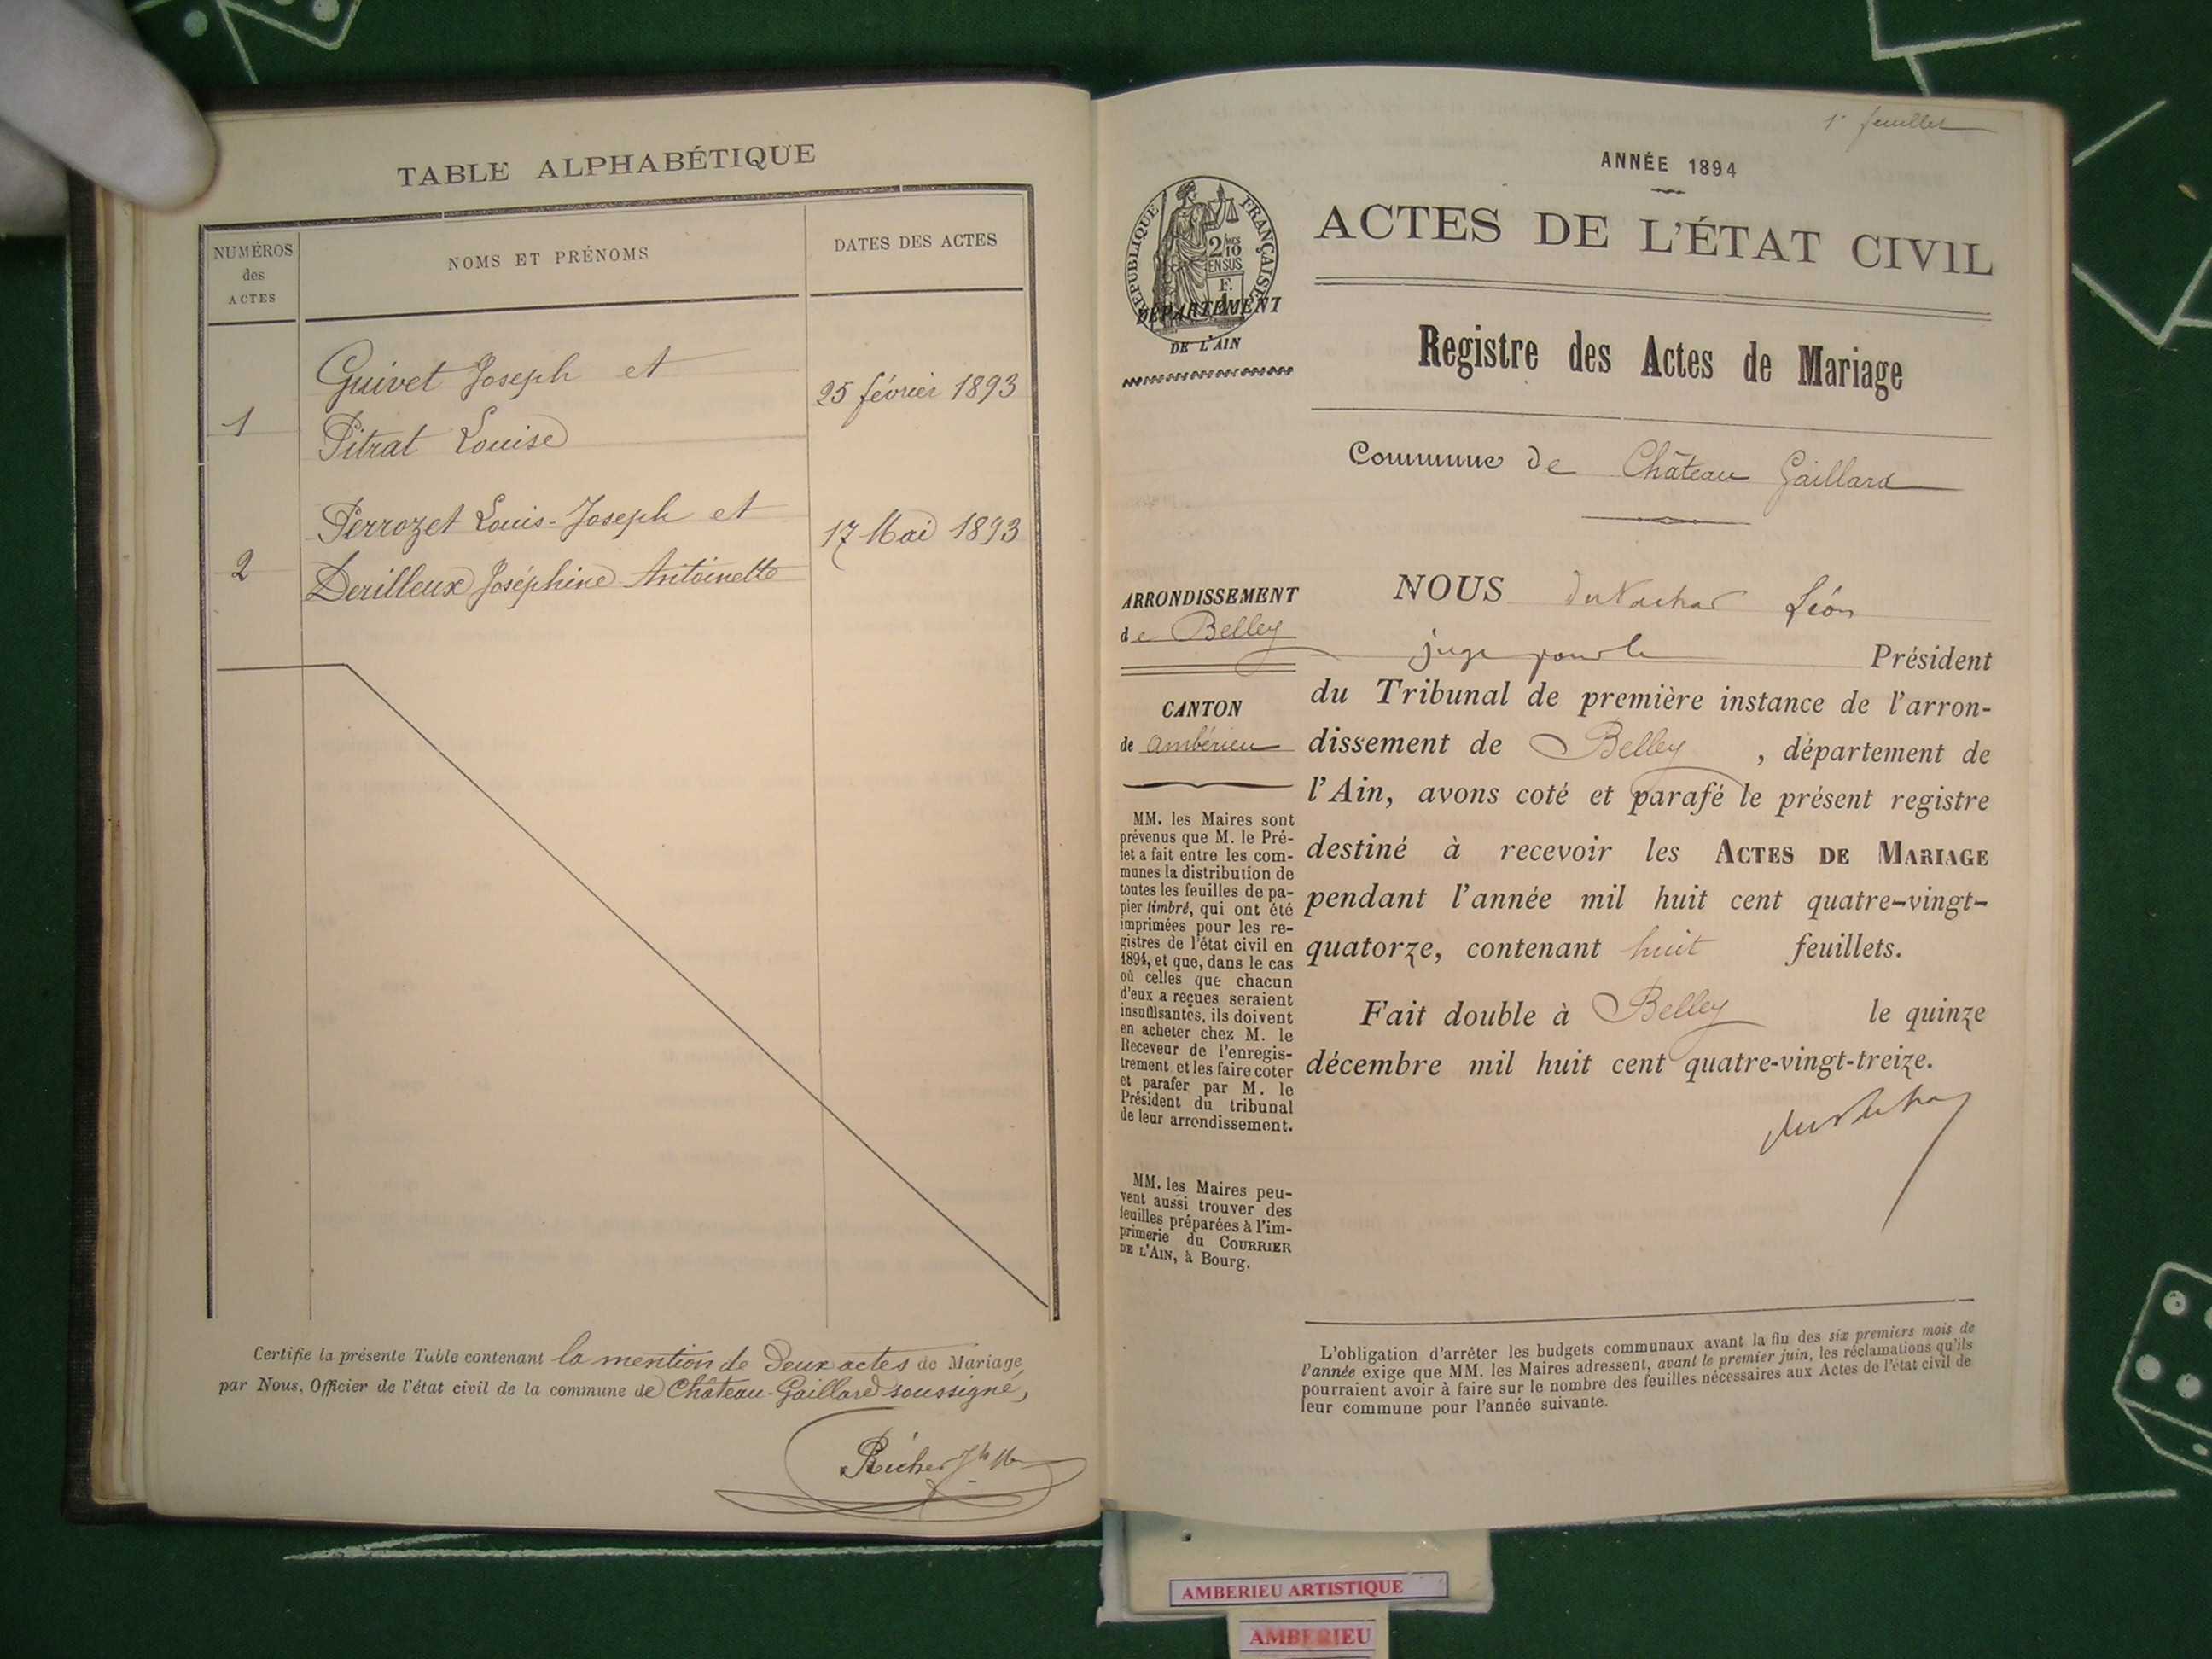 TABLE ALPHABÉTIQUE
NUMÉROS
des
ACTES
NOMS ET PRÉNOMS
DATES DES ACTES
Guivet Joseph et
25 février 1893
1
Pitrat Louise
Perrozet Louis-Joseph et
17 Mai 1893
2
Derilleux Joséphine Antoinette
Certifie la présente Table contenant la mention de deux actes de Mariage
par Nous, Officier de l'état civil de la commune de Château-Gaillard soussigné,
Richer
1er feuillet
ANNÉE 1894
ACTES DE L'ÉTAT CIVIL
RÉPUBLIQUE FRANÇAISE
2 10
EN SUS
F.
DÉPARTEMENT
DE L'AIN
Registre des Actes de Mariage
Commune de Château Gaillard
ARRONDISSEMENT
de Belley
CANTON
de Ambérieu
MM. les Maires sont
prévenus que M. le Pré-
fet a fait entre les com-
munes la distribution de
toutes les feuilles de pa-
pier timbré, qui ont été
imprimées pour les re-
gistres de l'état civil en
1894, et que, dans le cas
où celles que chacun
d'eux a reçues seraient
insuffisantes, ils doivent
en acheter chez M. le
Receveur de l'enregis-
trement et les faire coter
et parafer par M. le
Président du tribunal
de leur arrondissement.
MM. les Maires peu-
vent aussi trouver des
feuilles préparées à l'im-
primerie du COURRIER
DE L'AIN, à Bourg.
NOUS Léon
juge pour le Président
du Tribunal de première instance de l'arron-
dissement de Belley , département de
l'Ain, avons coté et parafé le présent registre
destiné à recevoir les ACTES DE MARIAGE
pendant l'année mil huit cent quatre-vingt-
quatorze, contenant huit feuillets.
Fait double à Belley le quinze
décembre mil huit cent quatre-vingt-treize.
L'obligation d'arrêter les budgets communaux avant la fin des six premiers mois de
l'année exige que MM. les Maires adressent, avant le premier juin, les réclamations qu'ils
pourraient avoir à faire sur le nombre des feuilles nécessaires aux Actes de l'état civil de
leur commune pour l'année suivante.
AMBERIEU ARTISTIQUE
AMBERIEU